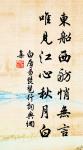 東船西舫悄無言
唯見江心秋月白
白居易琵琶行詩典網
集